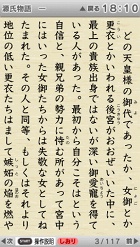 源氏物語 一
戻る 18:10
どの天皇様の御代であったか、女御とか
更衣とかいわれる後宮がおおぜいいた中に、
最上の貴族出身ではないが深い御寵愛を得て
いる人があった。最初から自分こそはという
自信と、親兄弟の勢力に恃む所があって宮中
にはいった女御たちからは失敬な女としてね
たまれた。その人と同等、もしくはそれより
地位の低い更衣たちはまして嫉妬の焔を燃や
次 操作説明 しおり 3/117 前